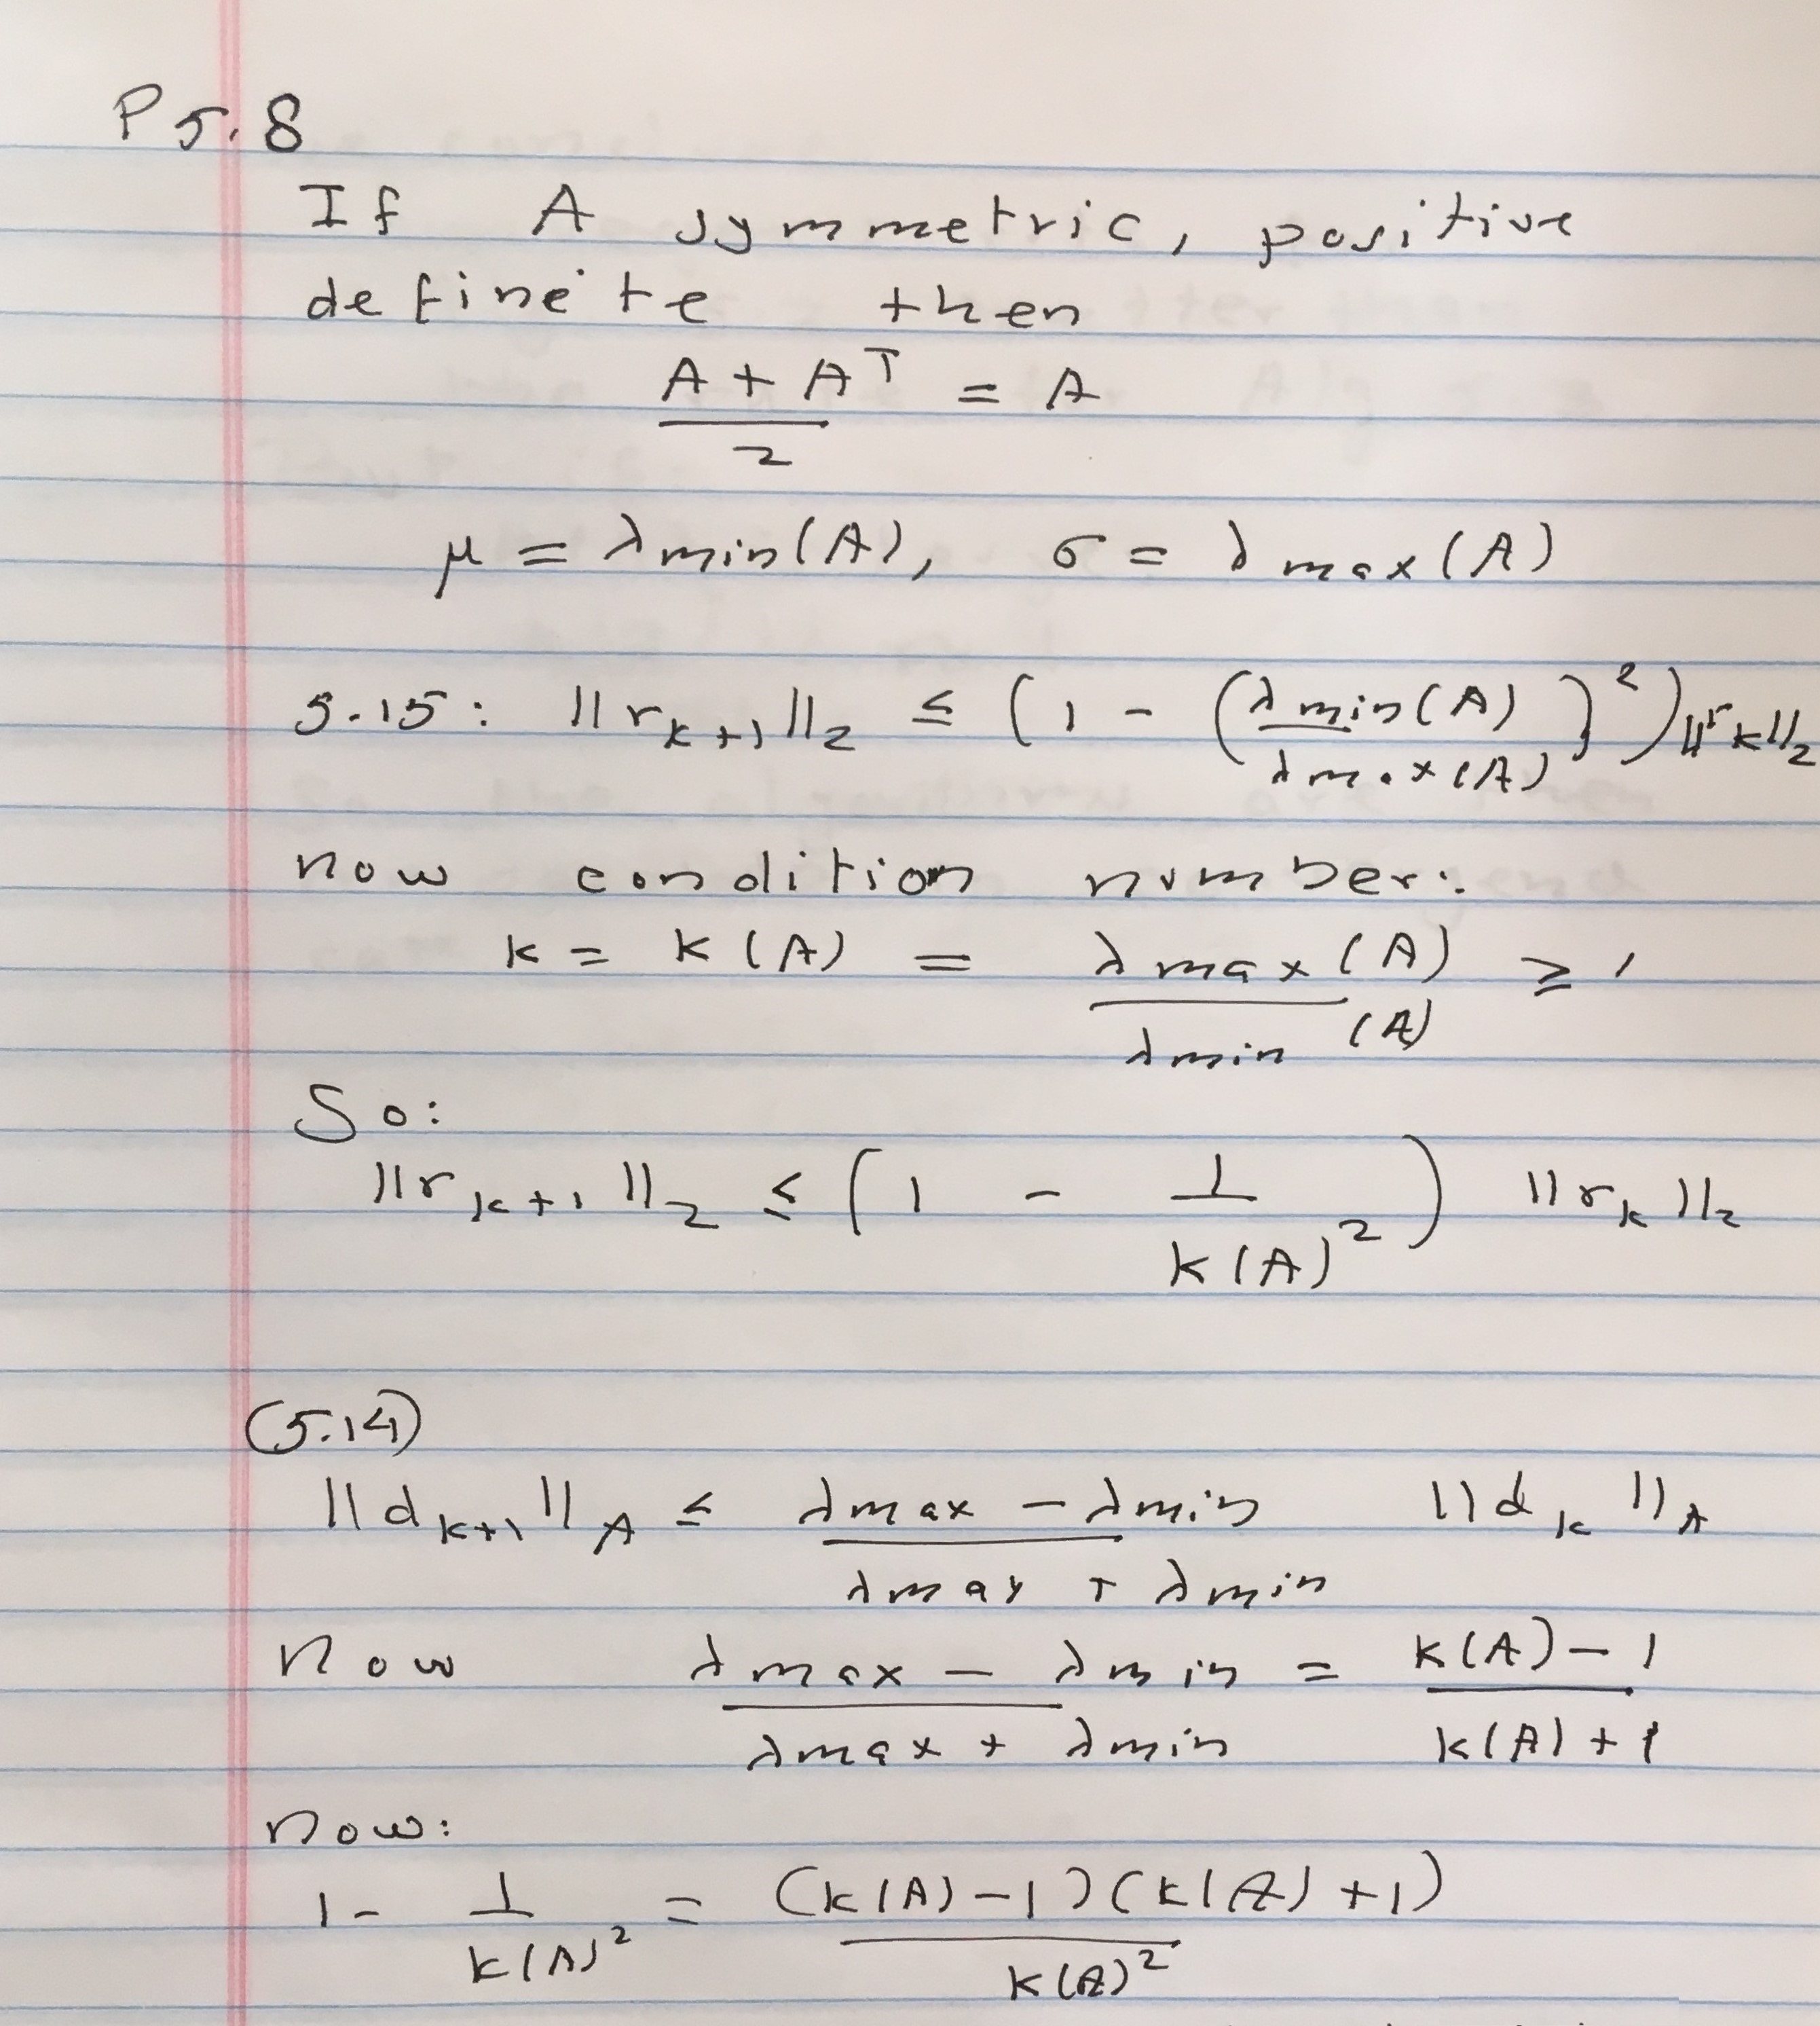 P 5.8
If A symmetric, positive
definite then
(A + A^T)/2 = A
μ = λmin(A), σ = λmax(A)
5.15: ||r_{k+1}||_2 ≤ (1 - (λmin(A)/λmax(A))^2) ||r_k||_2
now condition number:
k = k(A) = λmax(A)/λmin(A) ≥ 1
So:
||r_{k+1}||_2 ≤ (1 - 1/k(A)^2) ||r_k||_2
(5.14)
||d_{k+1}||_A ≤ (λmax - λmin)/(λmax + λmin) ||d_k||_A
Now (λmax - λmin)/(λmax + λmin) = (k(A) - 1)/(k(A) + 1)
now:
1 - 1/k(A)^2 = (k(A) - 1)(k(A) + 1)/k(A)^2